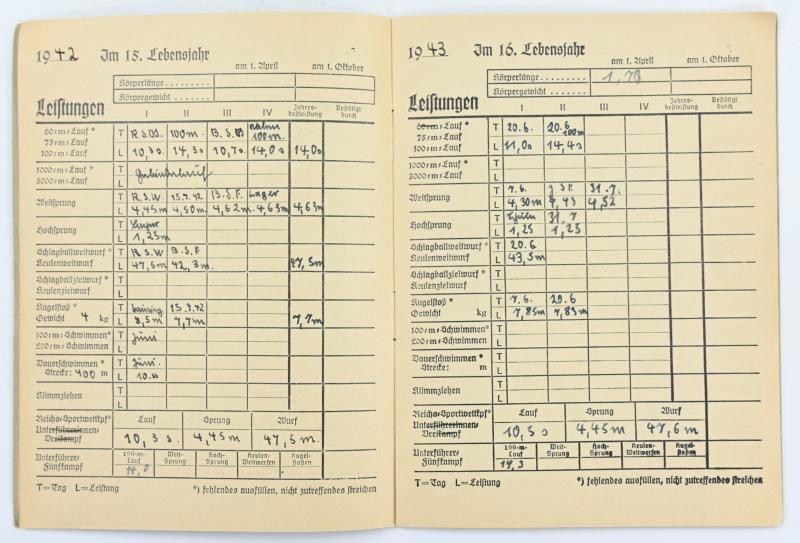 1942 Im 15. Lebensjahr
am 1. April am 1. Oktober
Körperlänge
Körpergewicht
Leistungen I II III IV Jahres-bestleistung Bestätigt durch
60=m=Lauf * T R.S.W. 100m. B.S.F.
75=m=Lauf 100m.
100=m=Lauf L 10,3s 14,3s 10,7s 14,0s 14,0s
1000=m=Lauf * T
3000=m=Lauf L
Weitsprung T R.S.W. 15.7.42 B.S.F. Lager
L 4,45m 4,50m. 4,62m. 4,63m 4,63m
Hochsprung T Lager
L 1,25m
Schlagballweitwurf * T R.S.W B.S.F
Keulenweitwurf L 47,5m 42,3m. 47,5m
Schlagballzielwurf * T
Keulenzielwurf L
Kugelstoß * T 15.7.42
Gewicht 4 kg L 8,5m 7,7m 7,7m
100=m=Schwimmen* T Juni
200=m=Schwimmen L
Dauerschwimmen * T Juni.
Strecke: 400 m L 10.
Klimmziehen T
L
Reichs=Sportwettkpf* Lauf Sprung Wurf
Unterführerinnen=
Dreikampf 10,3s. 4,45m 47,5m.
Unterführer=Fünfkampf 100-m-Lauf Weit-Sprung Hoch-Sprung Keulen-Weitwerfen Kugel-stoßen
14,0
T=Tag L=Leistung *) fehlendes ausfüllen, nicht zutreffendes streichen
1943 Im 16. Lebensjahr
am 1. April am 1. Oktober
Körperlänge 1,78
Körpergewicht
Leistungen I II III IV Jahres-bestleistung Bestätigt durch
60=m=Lauf * T 20.6. 20.6
75=m=Lauf 100m
100=m=Lauf L 11,0s 14,4s
1000=m=Lauf * T
3000=m=Lauf L
Weitsprung T 7.6. 31.7.
L 4,30m 4,43 4,52
Hochsprung T 31.7
L 1,25 1,25
Schlagballweitwurf * T 20.6
Keulenweitwurf L 43,5m
Schlagballzielwurf * T
Keulenzielwurf L
Kugelstoß * T 7.6. 20.6
Gewicht kg L 7,85m 7,83m
100=m=Schwimmen* T
200=m=Schwimmen L
Dauerschwimmen * T
Strecke: m L
Klimmziehen T
L
Reichs=Sportwettkpf* Lauf Sprung Wurf
Unterführerinnen=
Dreikampf 10,5s 4,45m 47,6m
Unterführer=Fünfkampf 100-m-Lauf Weit-Sprung Hoch-Sprung Keulen-Weitwerfen Kugel-stoßen
14,3
T=Tag L=Leistung *) fehlendes ausfüllen, nicht zutreffendes streichen